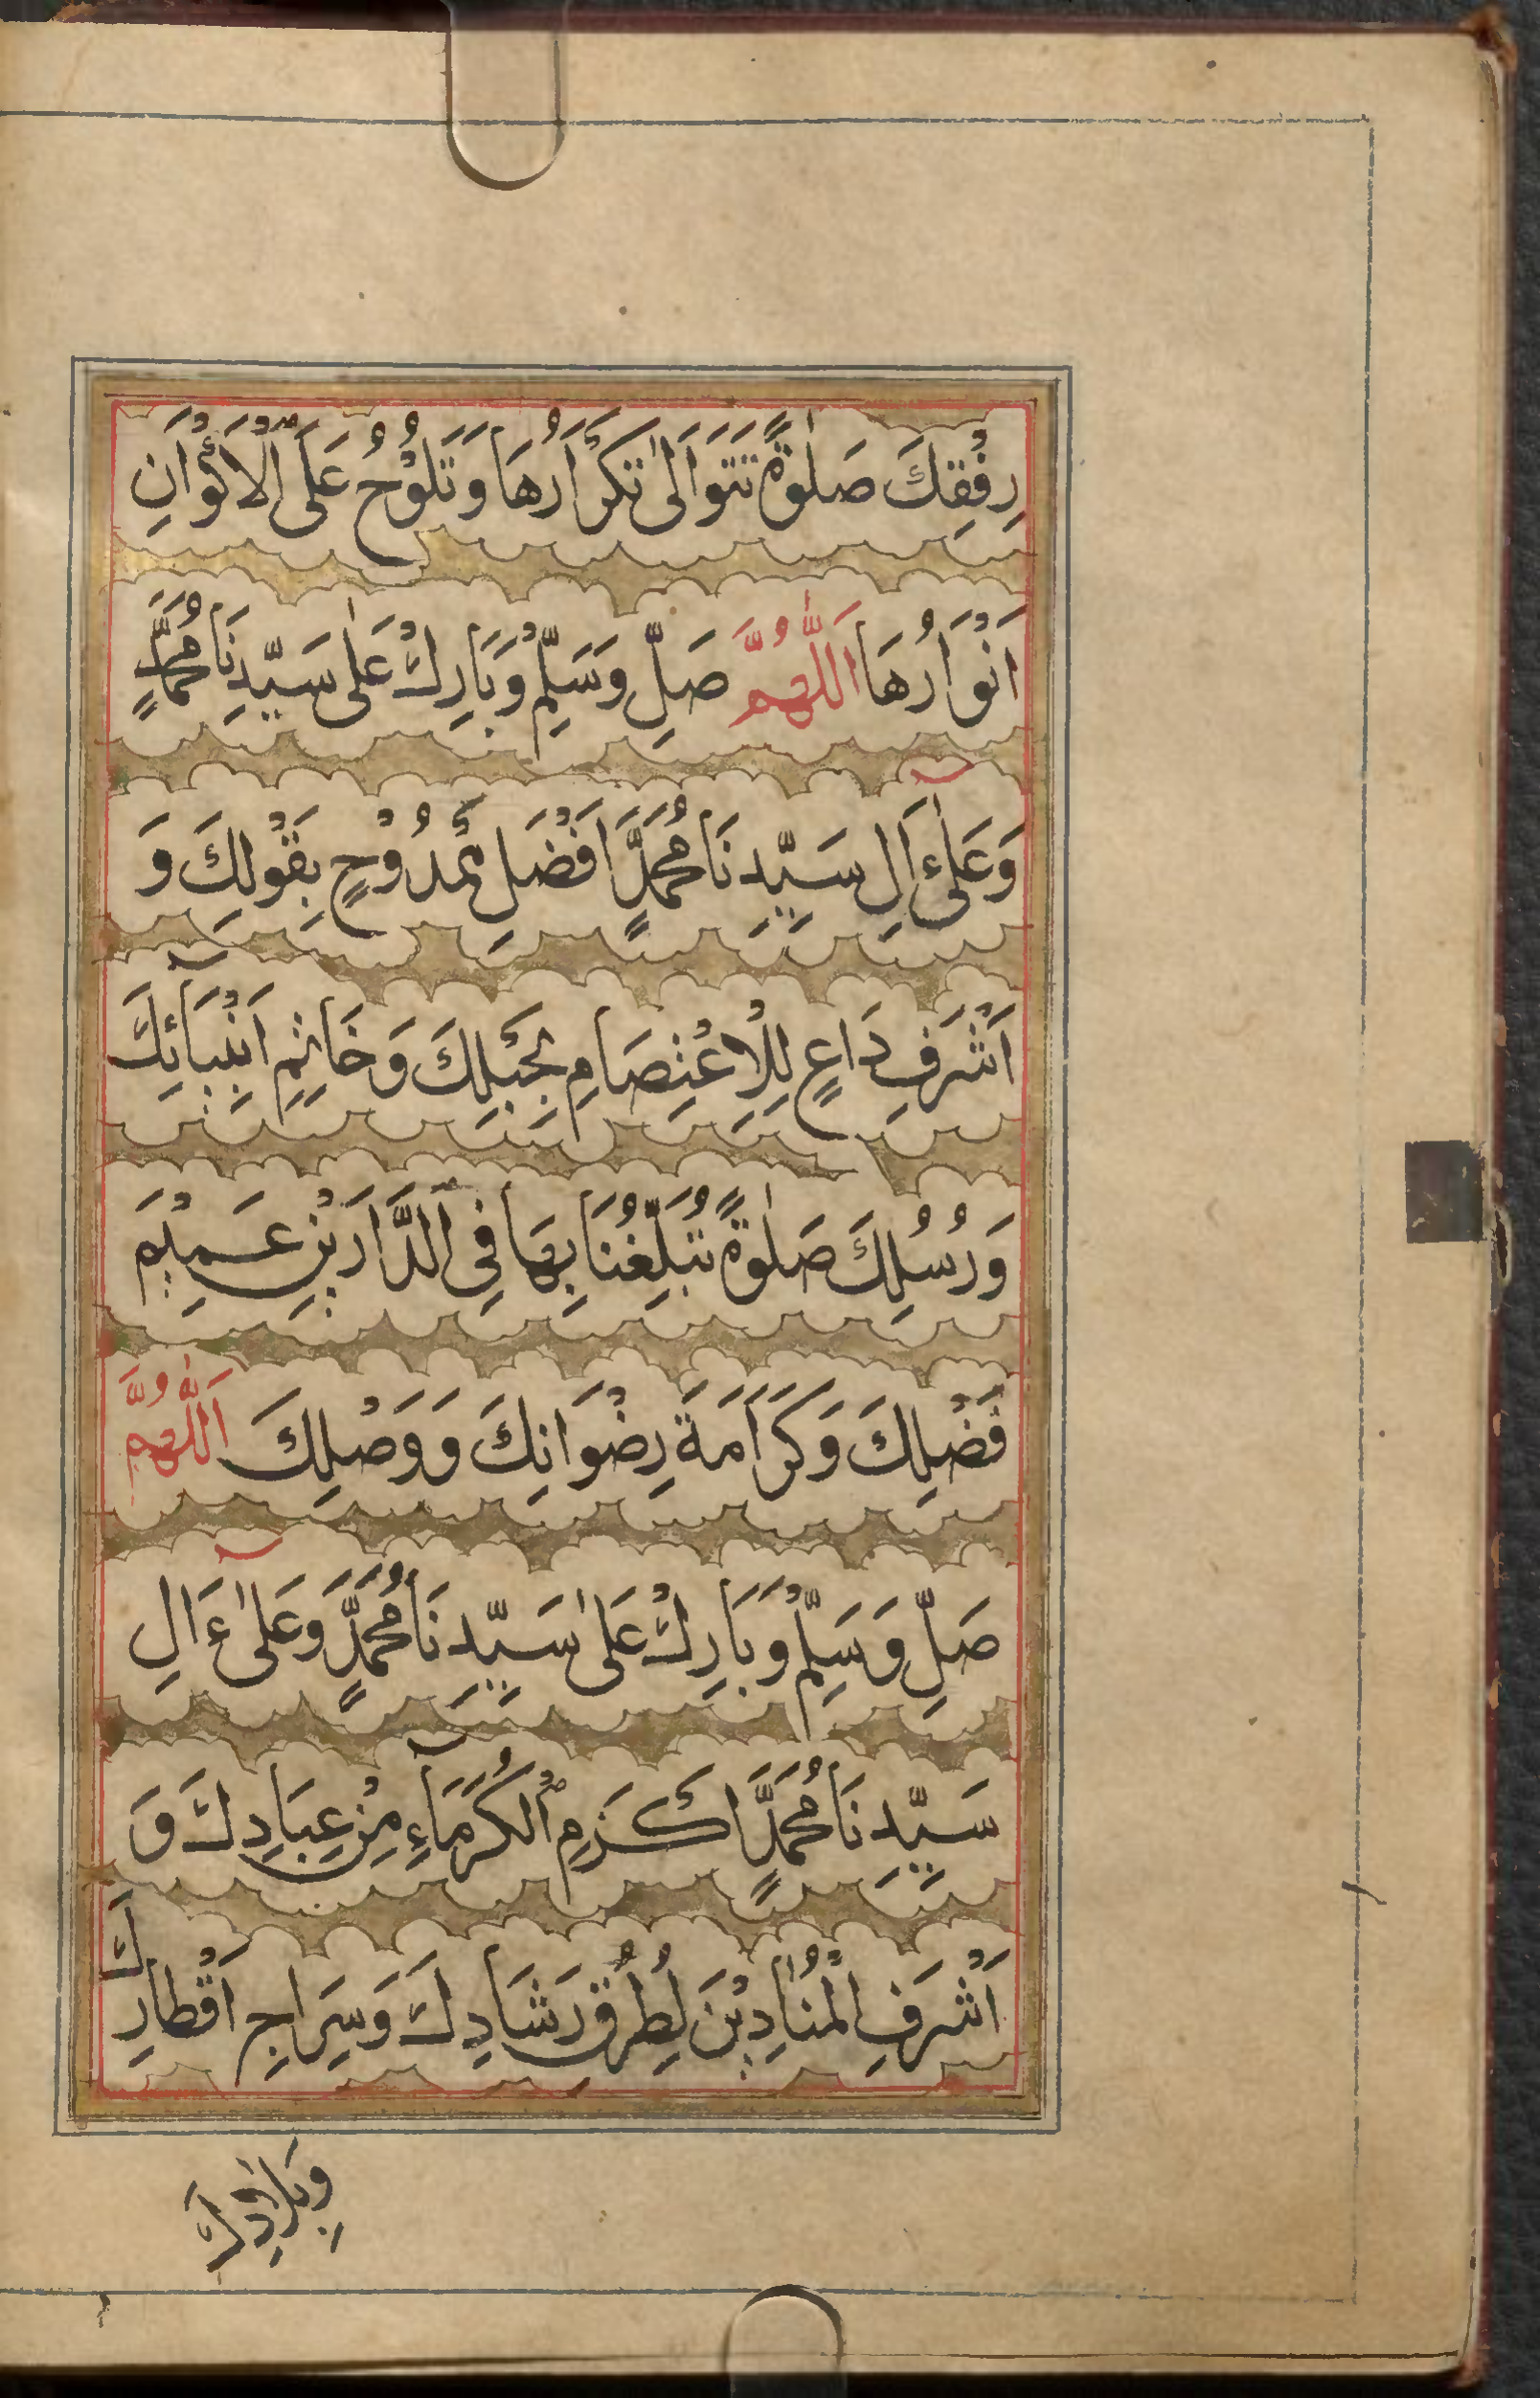 رِفْقِكَ صَلٰوةً تَتَوَالٰى تَكْرَارُهَا وَتَلُوْحُ عَلَى الْاَكْوَانِ
اَنْوَارُهَا اَللّٰهُمَّ صَلِّ وَسَلِّمْ وَبَارِكْ عَلٰى سَيِّدِنَا مُحَمَّدٍ
وَعَلٰٓى ءَالِ سَيِّدِنَا مُحَمَّدٍ اَفْضَلِ مَمْدُوْحٍ بِقَوْلِكَ وَ
اَشْرَفِ دَاعٍ لِلْاِعْتِصَامِ بِحَبْلِكَ وَخَاتِمِ اَنْبِيَآئِكَ
وَرُسُلِكَ صَلٰوةً تُبَلِّغُنَا بِهَا فِى الدَّارَيْنِ عَمِيْمَ
فَضْلِكَ وَكَرَامَةَ رِضْوَانِكَ وَوَصْلِكَ اَللّٰهُمَّ
صَلِّ وَسَلِّمْ وَبَارِكْ عَلٰى سَيِّدِنَا مُحَمَّدٍ وَعَلٰٓى ءَالِ
سَيِّدِنَا مُحَمَّدٍ اَكْرَمِ الْكُرَمَآءِ مِنْ عِبَادِكَ وَ
اَشْرَفِ الْمُنَادِيْنَ لِطُرُقِ رَشَادِكَ وَسِرَاجِ اَقْطَارِكَ
وَبِلَادِكَ